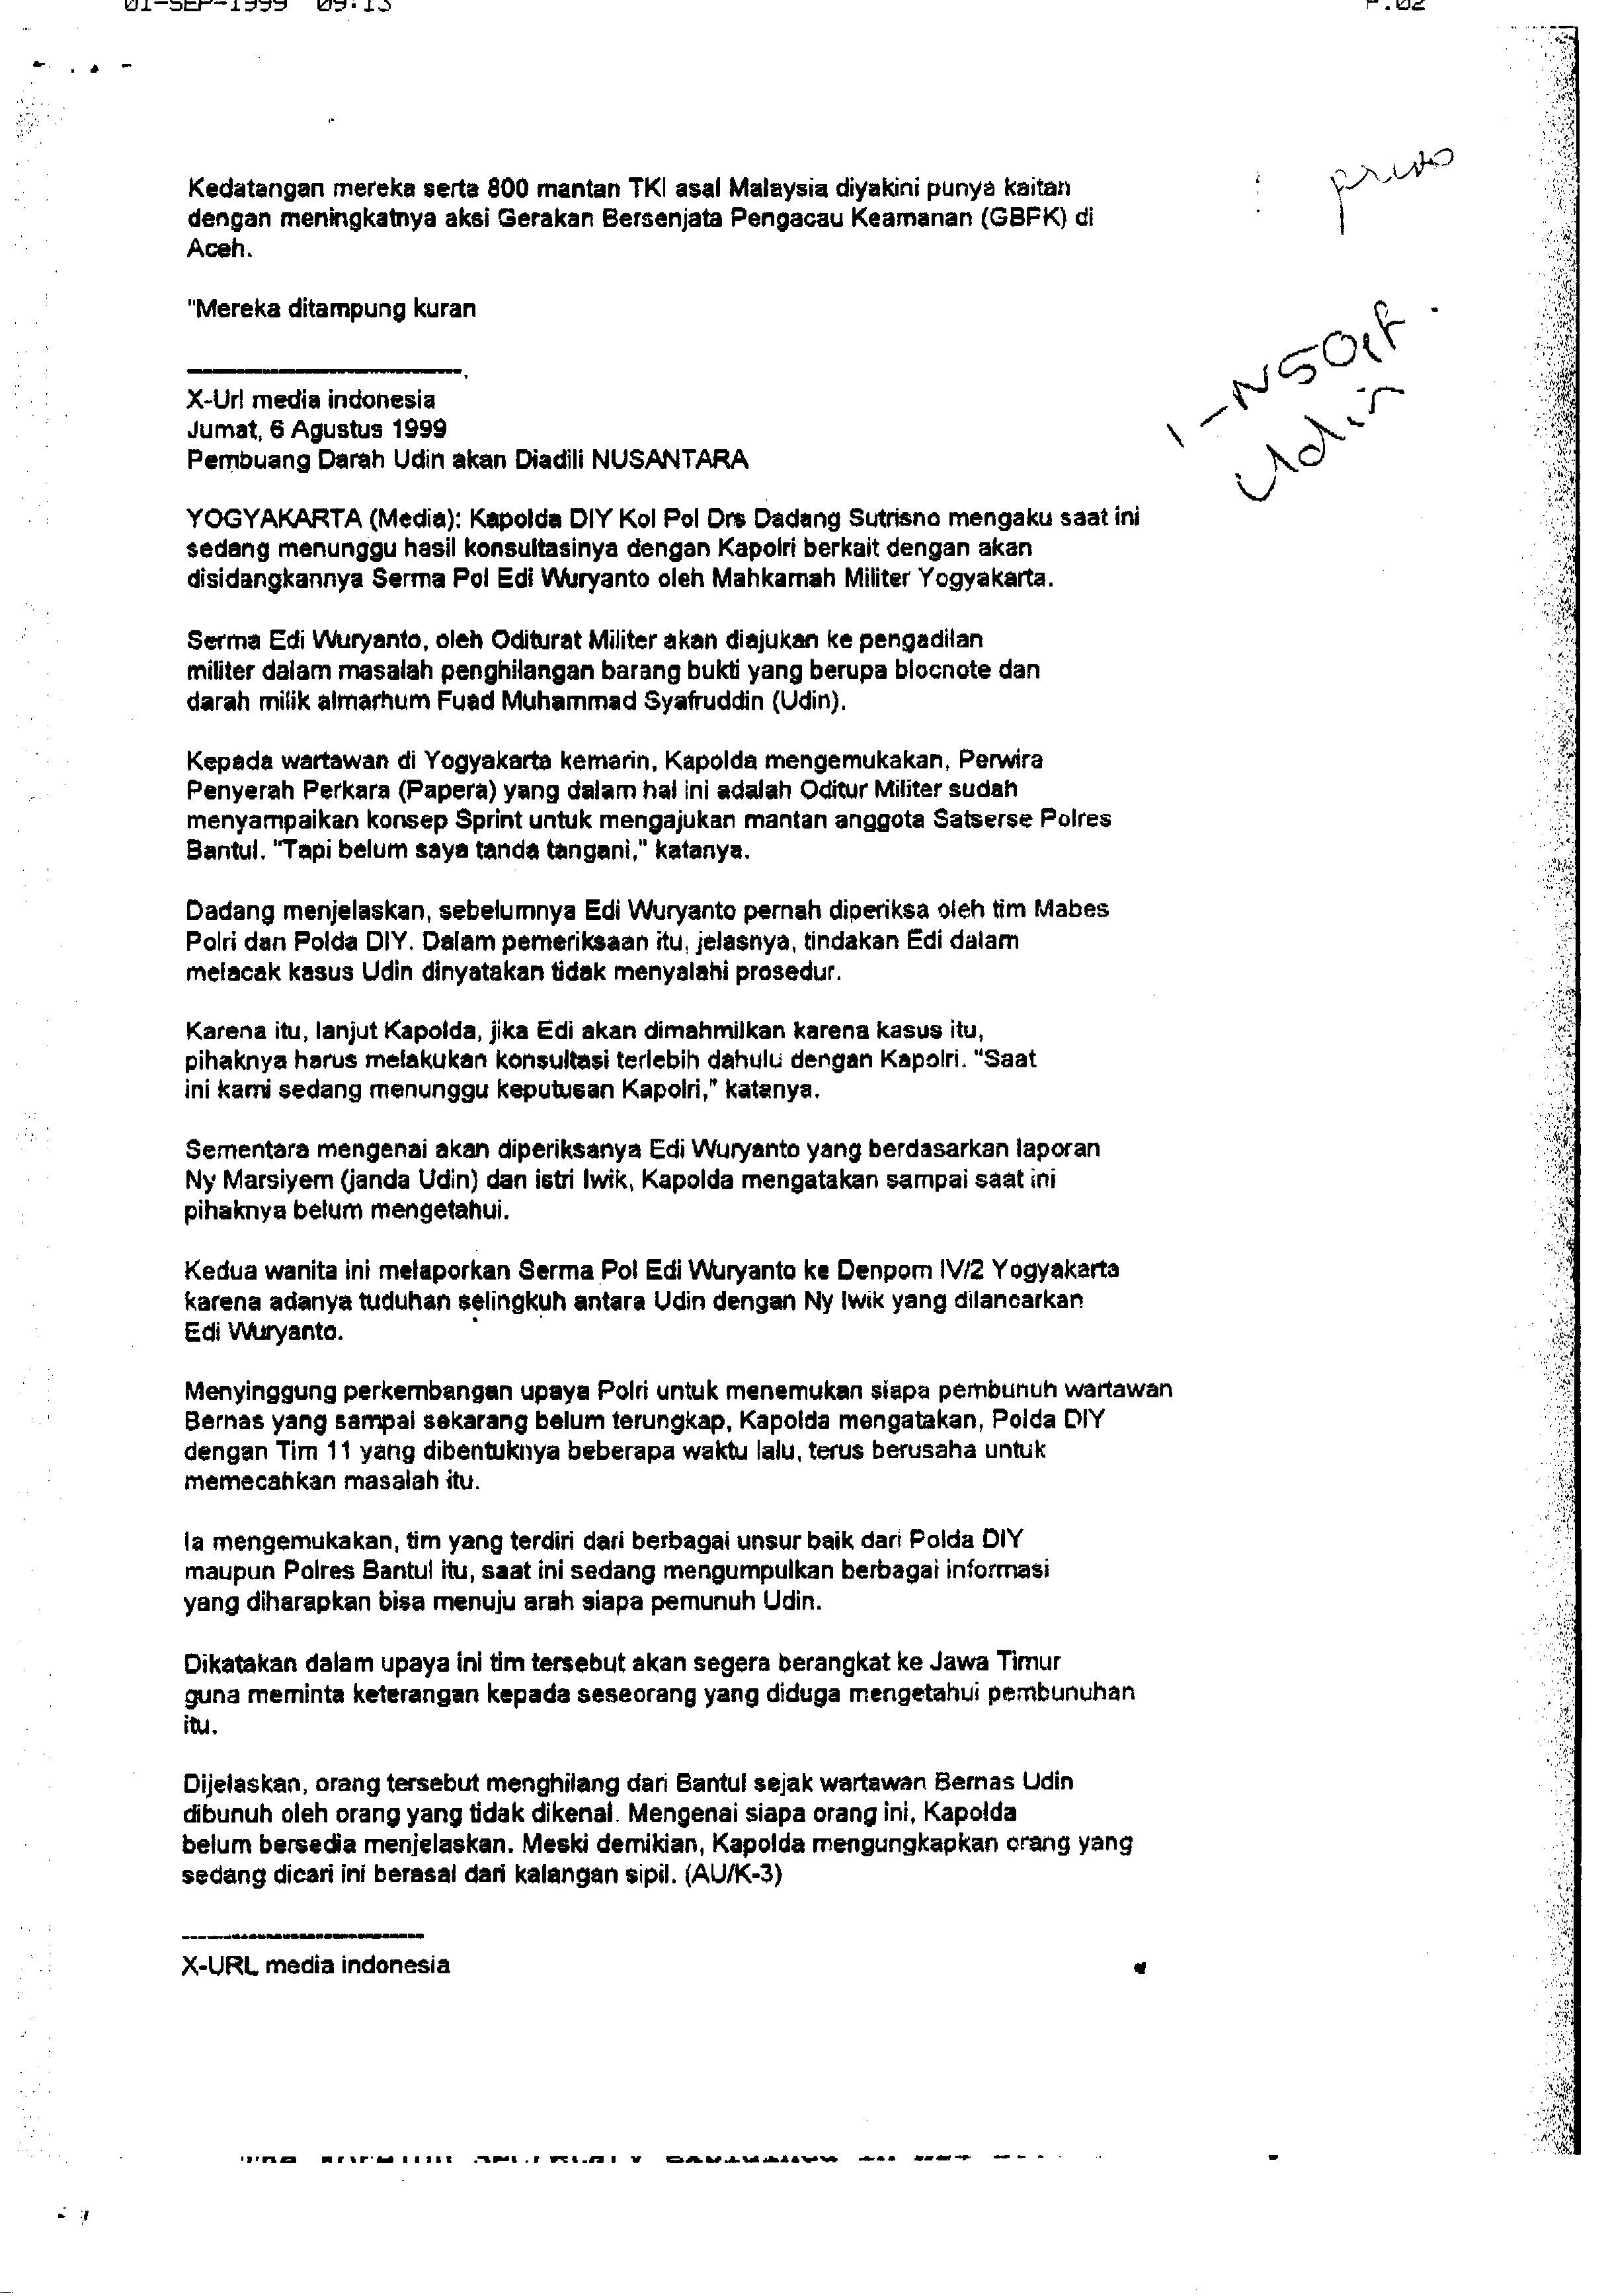 01-SEP-1999 09:13 P.02
Kedatangan mereka serta 800 mantan TKI asal Malaysia diyakini punya kaitan
dengan meningkatnya aksi Gerakan Bersenjata Pengacau Keamanan (GBPK) di
Aceh.
"Mereka ditampung kuran
X-Url media indonesia
Jumat, 6 Agustus 1999
Pembuang Darah Udin akan Diadili NUSANTARA
Udin
YOGYAKARTA (Media): Kapolda DIY Kol Pol Drs Dadang Sutrisno mengaku saat ini
sedang menunggu hasil konsultasinya dengan Kapolri berkait dengan akan
disidangkannya Serma Pol Edi Wuryanto oleh Mahkamah Militer Yogyakarta.
Serma Edi Wuryanto, oleh Oditurat Militer akan diajukan ke pengadilan
militer dalam masalah penghilangan barang bukti yang berupa blocnote dan
darah milik almarhum Fuad Muhammad Syafruddin (Udin).
Kepada wartawan di Yogyakarta kemarin, Kapolda mengemukakan, Perwira
Penyerah Perkara (Papera) yang dalam hal ini adalah Oditur Militer sudah
menyampaikan konsep Sprint untuk mengajukan mantan anggota Satserse Polres
Bantul. "Tapi belum saya tanda tangani," katanya.
Dadang menjelaskan, sebelumnya Edi Wuryanto pernah diperiksa oleh tim Mabes
Polri dan Polda DIY. Dalam pemeriksaan itu, jelasnya, tindakan Edi dalam
melacak kasus Udin dinyatakan tidak menyalahi prosedur.
Karena itu, lanjut Kapolda, jika Edi akan dimahmilkan karena kasus itu,
pihaknya harus melakukan konsultasi terlebih dahulu dengan Kapolri. "Saat
ini kami sedang menunggu keputusan Kapolri," katanya.
Sementara mengenai akan diperiksanya Edi Wuryanto yang berdasarkan laporan
Ny Marsiyem (janda Udin) dan istri Iwik, Kapolda mengatakan sampai saat ini
pihaknya belum mengetahui.
Kedua wanita ini melaporkan Serma Pol Edi Wuryanto ke Denpom IV/2 Yogyakarta
karena adanya tuduhan selingkuh antara Udin dengan Ny Iwik yang dilancarkan
Edi Wuryanto.
Menyinggung perkembangan upaya Polri untuk menemukan siapa pembunuh wartawan
Bernas yang sampai sekarang belum terungkap, Kapolda mengatakan, Polda DIY
dengan Tim 11 yang dibentuknya beberapa waktu lalu, terus berusaha untuk
memecahkan masalah itu.
Ia mengemukakan, tim yang terdiri dari berbagai unsur baik dari Polda DIY
maupun Polres Bantul itu, saat ini sedang mengumpulkan berbagai informasi
yang diharapkan bisa menuju arah siapa pemunuh Udin.
Dikatakan dalam upaya ini tim tersebut akan segera berangkat ke Jawa Timur
guna meminta keterangan kepada seseorang yang diduga mengetahui pembunuhan
itu.
Dijelaskan, orang tersebut menghilang dari Bantul sejak wartawan Bernas Udin
dibunuh oleh orang yang tidak dikenal. Mengenai siapa orang ini, Kapolda
belum bersedia menjelaskan. Meski demikian, Kapolda mengungkapkan orang yang
sedang dicari ini berasal dari kalangan sipil. (AU/K-3)
X-URL media indonesia